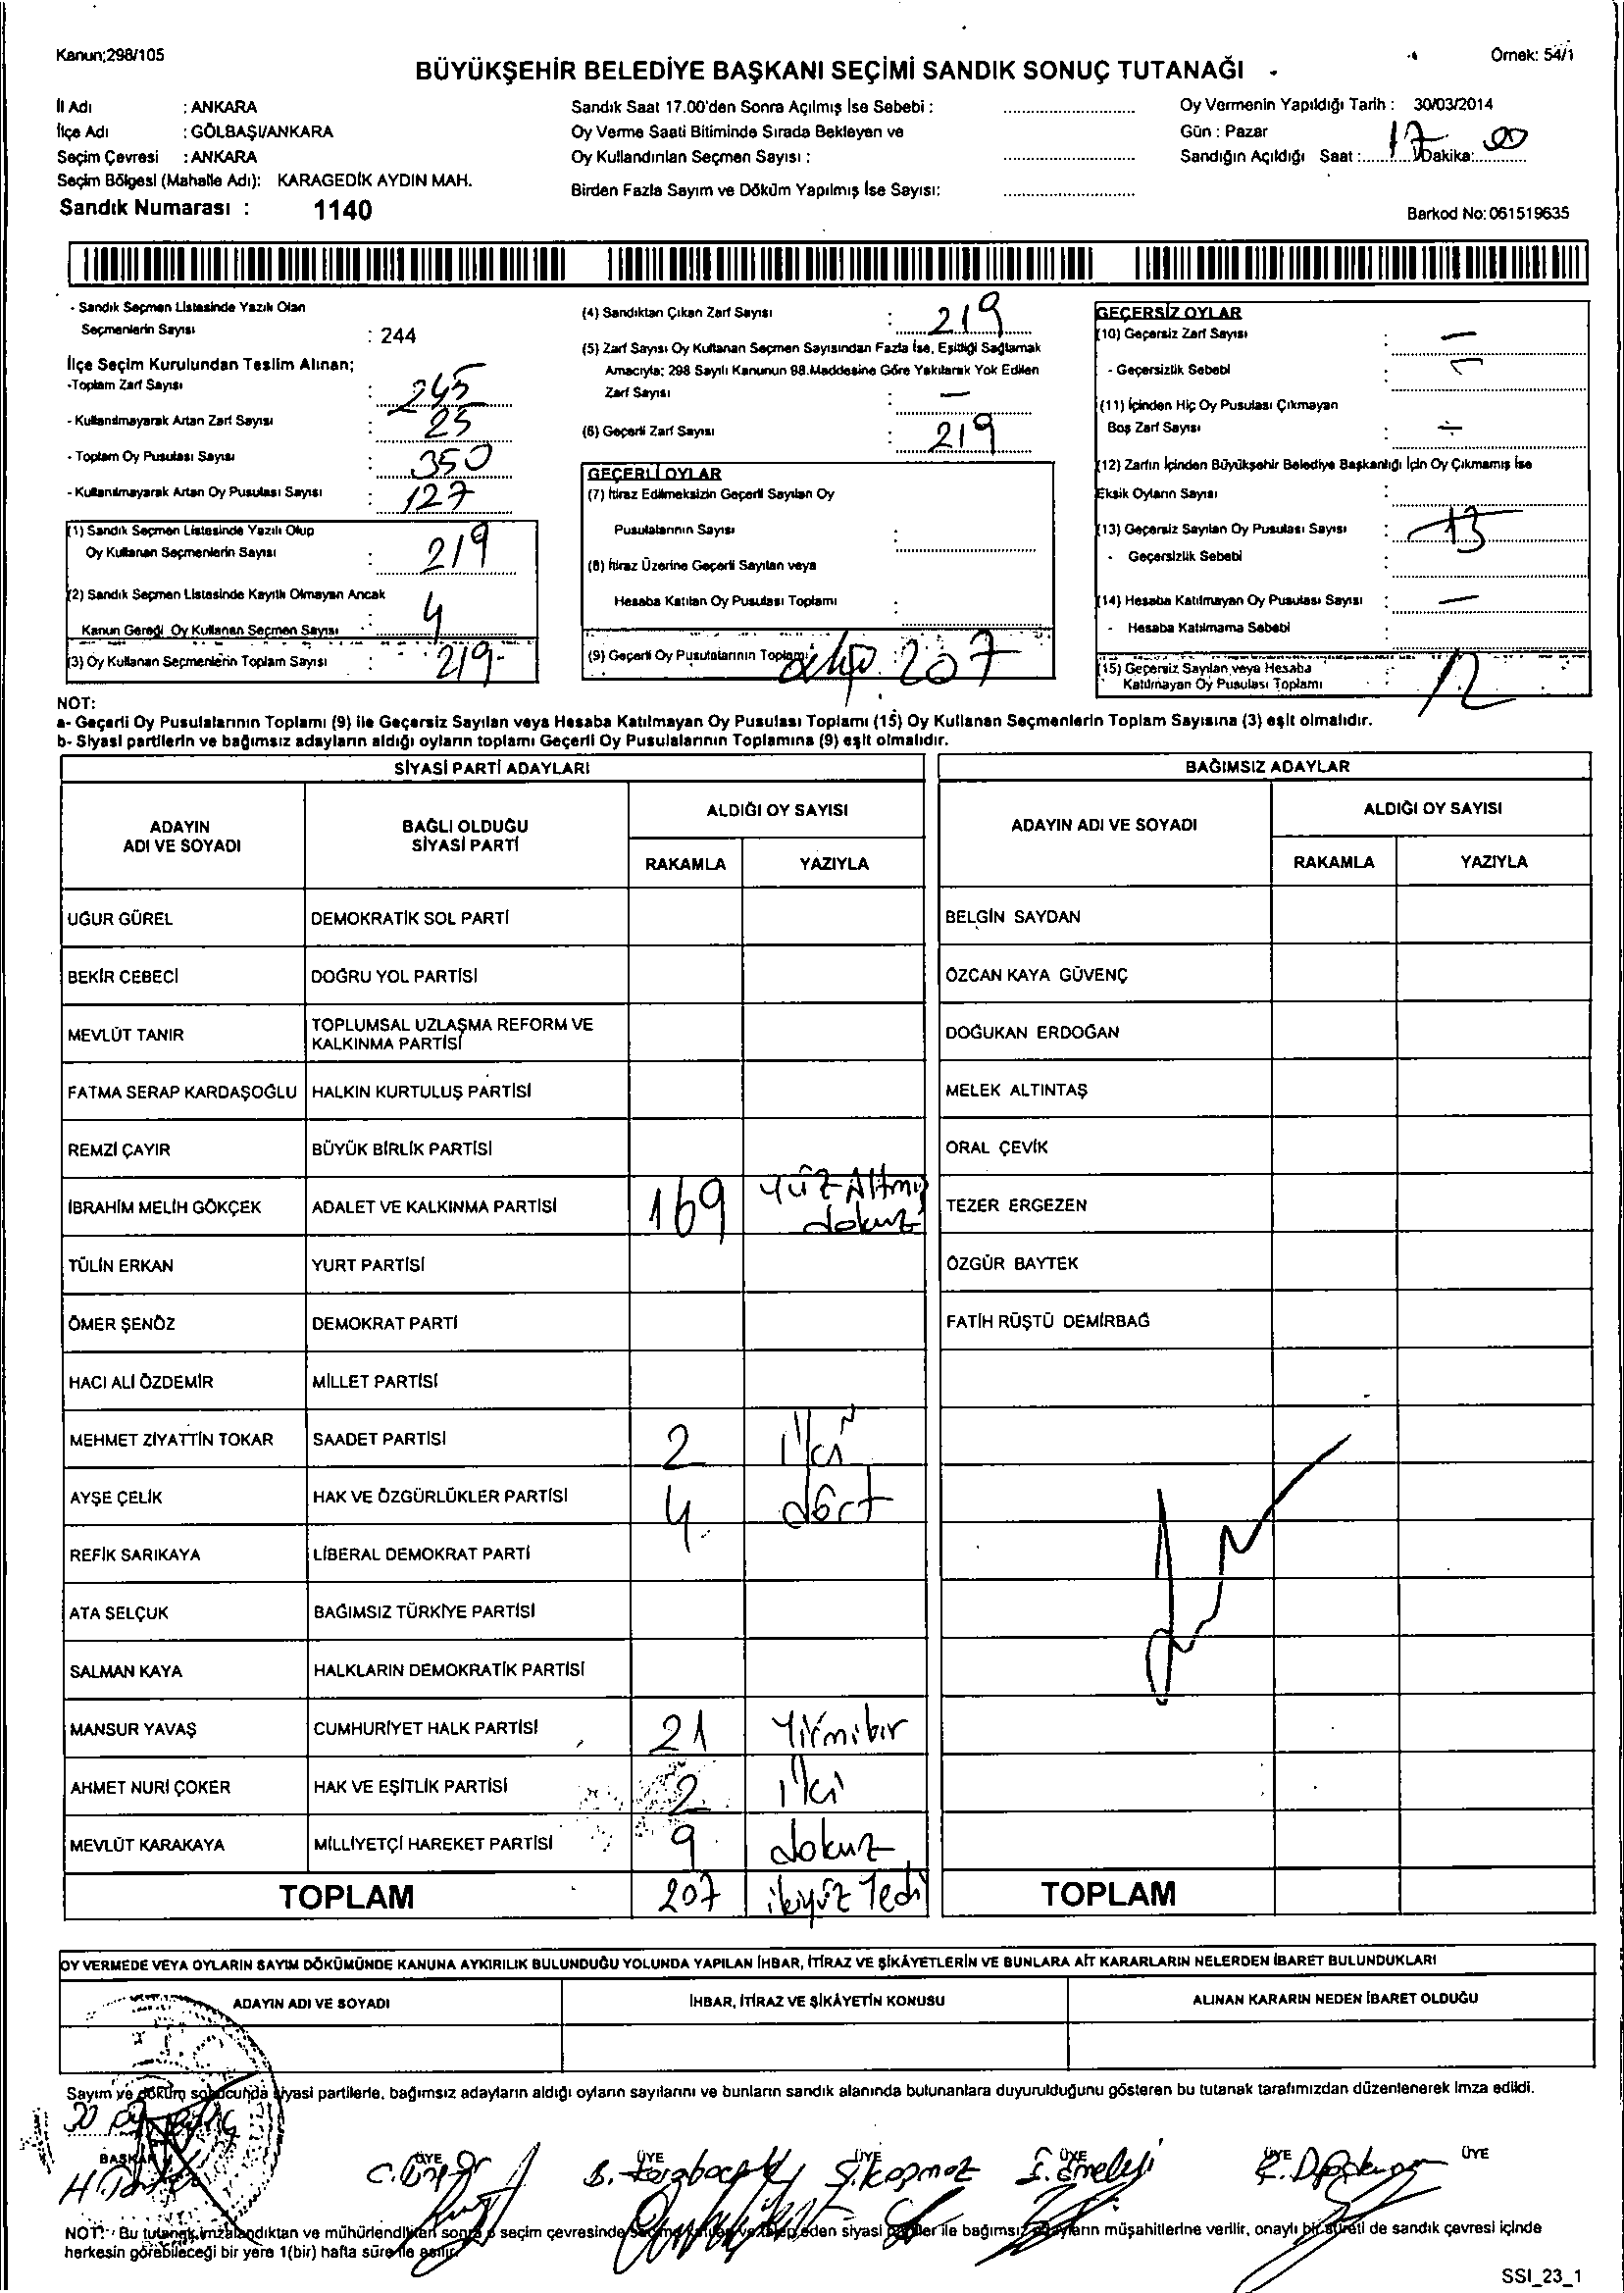 Kanun;298/105
Örnek: 54/1
BÜYÜKŞEHİR BELEDİYE BAŞKANI SEÇİMİ SANDIK SONUÇ TUTANAĞI
İl Adı : ANKARA
İlçe Adı : GÖLBAŞI/ANKARA
Seçim Çevresi : ANKARA
Seçim Bölgesi (Mahalle Adı): KARAGEDİK AYDIN MAH.
Sandık Numarası : 1140
Sandık Saat 17.00'den Sonra Açılmış İse Sebebi :
Oy Verme Saati Bitiminde Sırada Bekleyen ve
Oy Kullandırılan Seçmen Sayısı :
Birden Fazla Sayım ve Döküm Yapılmış İse Sayısı:
Oy Vermenin Yapıldığı Tarih : 30/03/2014
Gün : Pazar
Sandığın Açıldığı Saat : 17 Dakika: 00
Barkod No: 061519635
- Sandık Seçmen Listesinde Yazılı Olan
Seçmenlerin Sayısı : 244
İlçe Seçim Kurulundan Teslim Alınan;
-Toplam Zarf Sayısı : 245
- Kullanılmayarak Artan Zarf Sayısı : 25
- Toplam Oy Pusulası Sayısı : 350
- Kullanılmayarak Artan Oy Pusulası Sayısı : 127
(1) Sandık Seçmen Listesinde Yazılı Olup
Oy Kullanan Seçmenlerin Sayısı : 219
(2) Sandık Seçmen Listesinde Kayıtlı Olmayan Ancak
Kanun Gereği Oy Kullanan Seçmen Sayısı : 4
(3) Oy Kullanan Seçmenlerin Toplam Sayısı : 219
(4) Sandıktan Çıkan Zarf Sayısı : 219
(5) Zarf Sayısı Oy Kullanan Seçmen Sayısından Fazla İse, Eşitliği Sağlamak
Amacıyla; 298 Sayılı Kanunun 98.Maddesine Göre Yakılarak Yok Edilen
Zarf Sayısı : —
(6) Geçerli Zarf Sayısı : 219
GEÇERLİ OYLAR
(7) İtiraz Edilmeksizin Geçerli Sayılan Oy
Pusulalarının Sayısı :
(8) İtiraz Üzerine Geçerli Sayılan veya
Hesaba Katılan Oy Pusulası Toplamı :
(9) Geçerli Oy Pusulalarının Toplamı : 207
GEÇERSİZ OYLAR
(10) Geçersiz Zarf Sayısı : —
- Geçersizlik Sebebi :
(11) İçinden Hiç Oy Pusulası Çıkmayan
Boş Zarf Sayısı : —
(12) Zarfın İçinden Büyükşehir Belediye Başkanlığı İçin Oy Çıkmamış İse
Eksik Oyların Sayısı :
(13) Geçersiz Sayılan Oy Pusulası Sayısı : 13
- Geçersizlik Sebebi :
(14) Hesaba Katılmayan Oy Pusulası Sayısı : —
- Hesaba Katılmama Sebebi :
(15) Geçersiz Sayılan veya Hesaba
Katılmayan Oy Pusulası Toplamı : 12
NOT:
a- Geçerli Oy Pusulalarının Toplamı (9) ile Geçersiz Sayılan veya Hesaba Katılmayan Oy Pusulası Toplamı (15) Oy Kullanan Seçmenlerin Toplam Sayısına (3) eşit olmalıdır.
b- Siyasi partilerin ve bağımsız adayların aldığı oyların toplamı Geçerli Oy Pusulalarının Toplamına (9) eşit olmalıdır.
SİYASİ PARTİ ADAYLARI
ADAYIN ADI VE SOYADI
BAĞLI OLDUĞU SİYASİ PARTİ
ALDIĞI OY SAYISI
RAKAMLA YAZIYLA
UĞUR GÜREL DEMOKRATİK SOL PARTİ
BEKİR CEBECİ DOĞRU YOL PARTİSİ
MEVLÜT TANIR TOPLUMSAL UZLAŞMA REFORM VE KALKINMA PARTİSİ
FATMA SERAP KARDAŞOĞLU HALKIN KURTULUŞ PARTİSİ
REMZİ ÇAYIR BÜYÜK BİRLİK PARTİSİ
İBRAHİM MELİH GÖKÇEK ADALET VE KALKINMA PARTİSİ 169 yüz Altmış dokuz
TÜLİN ERKAN YURT PARTİSİ
ÖMER ŞENÖZ DEMOKRAT PARTİ
HACI ALİ ÖZDEMİR MİLLET PARTİSİ
MEHMET ZİYATTİN TOKAR SAADET PARTİSİ 2 iki
AYŞE ÇELİK HAK VE ÖZGÜRLÜKLER PARTİSİ 4 dört
REFİK SARIKAYA LİBERAL DEMOKRAT PARTİ
ATA SELÇUK BAĞIMSIZ TÜRKİYE PARTİSİ
SALMAN KAYA HALKLARIN DEMOKRATİK PARTİSİ
MANSUR YAVAŞ CUMHURİYET HALK PARTİSİ 21 Yirmibir
AHMET NURİ ÇOKER HAK VE EŞİTLİK PARTİSİ 2 iki
MEVLÜT KARAKAYA MİLLİYETÇİ HAREKET PARTİSİ 9 dokuz
TOPLAM 207 ikiyüz Yedi
BAĞIMSIZ ADAYLAR
ADAYIN ADI VE SOYADI
ALDIĞI OY SAYISI
RAKAMLA YAZIYLA
BELGİN SAYDAN
ÖZCAN KAYA GÜVENÇ
DOĞUKAN ERDOĞAN
MELEK ALTINTAŞ
ORAL ÇEVİK
TEZER ERGEZEN
ÖZGÜR BAYTEK
FATİH RÜŞTÜ DEMİRBAĞ
TOPLAM
OY VERMEDE VEYA OYLARIN SAYIM DÖKÜMÜNDE KANUNA AYKIRILIK BULUNDUĞU YOLUNDA YAPILAN İHBAR, İTİRAZ VE ŞİKÂYETLERİN VE BUNLARA AİT KARARLARIN NELERDEN İBARET BULUNDUKLARI
ADAYIN ADI VE SOYADI
İHBAR, İTİRAZ VE ŞİKÂYETİN KONUSU
ALINAN KARARIN NEDEN İBARET OLDUĞU
Sayım ve döküm sonucunda siyasi partilerle, bağımsız adayların aldığı oyların sayılarını ve bunların sandık alanında bulunanlara duyurulduğunu gösteren bu tutanak tarafımızdan düzenlenerek imza edildi.
BAŞKAN ÜYE ÜYE ÜYE ÜYE ÜYE ÜYE
NOT: Bu tutanak imzalandıktan ve mühürlendikten sonra seçim çevresinde eden siyasi partiler ile bağımsız adayların müşahitlerine verilir, onaylı bir sureti de sandık çevresi içinde
herkesin görebileceği bir yere 1(bir) hafta süre ile asılır.
SSI_23_1